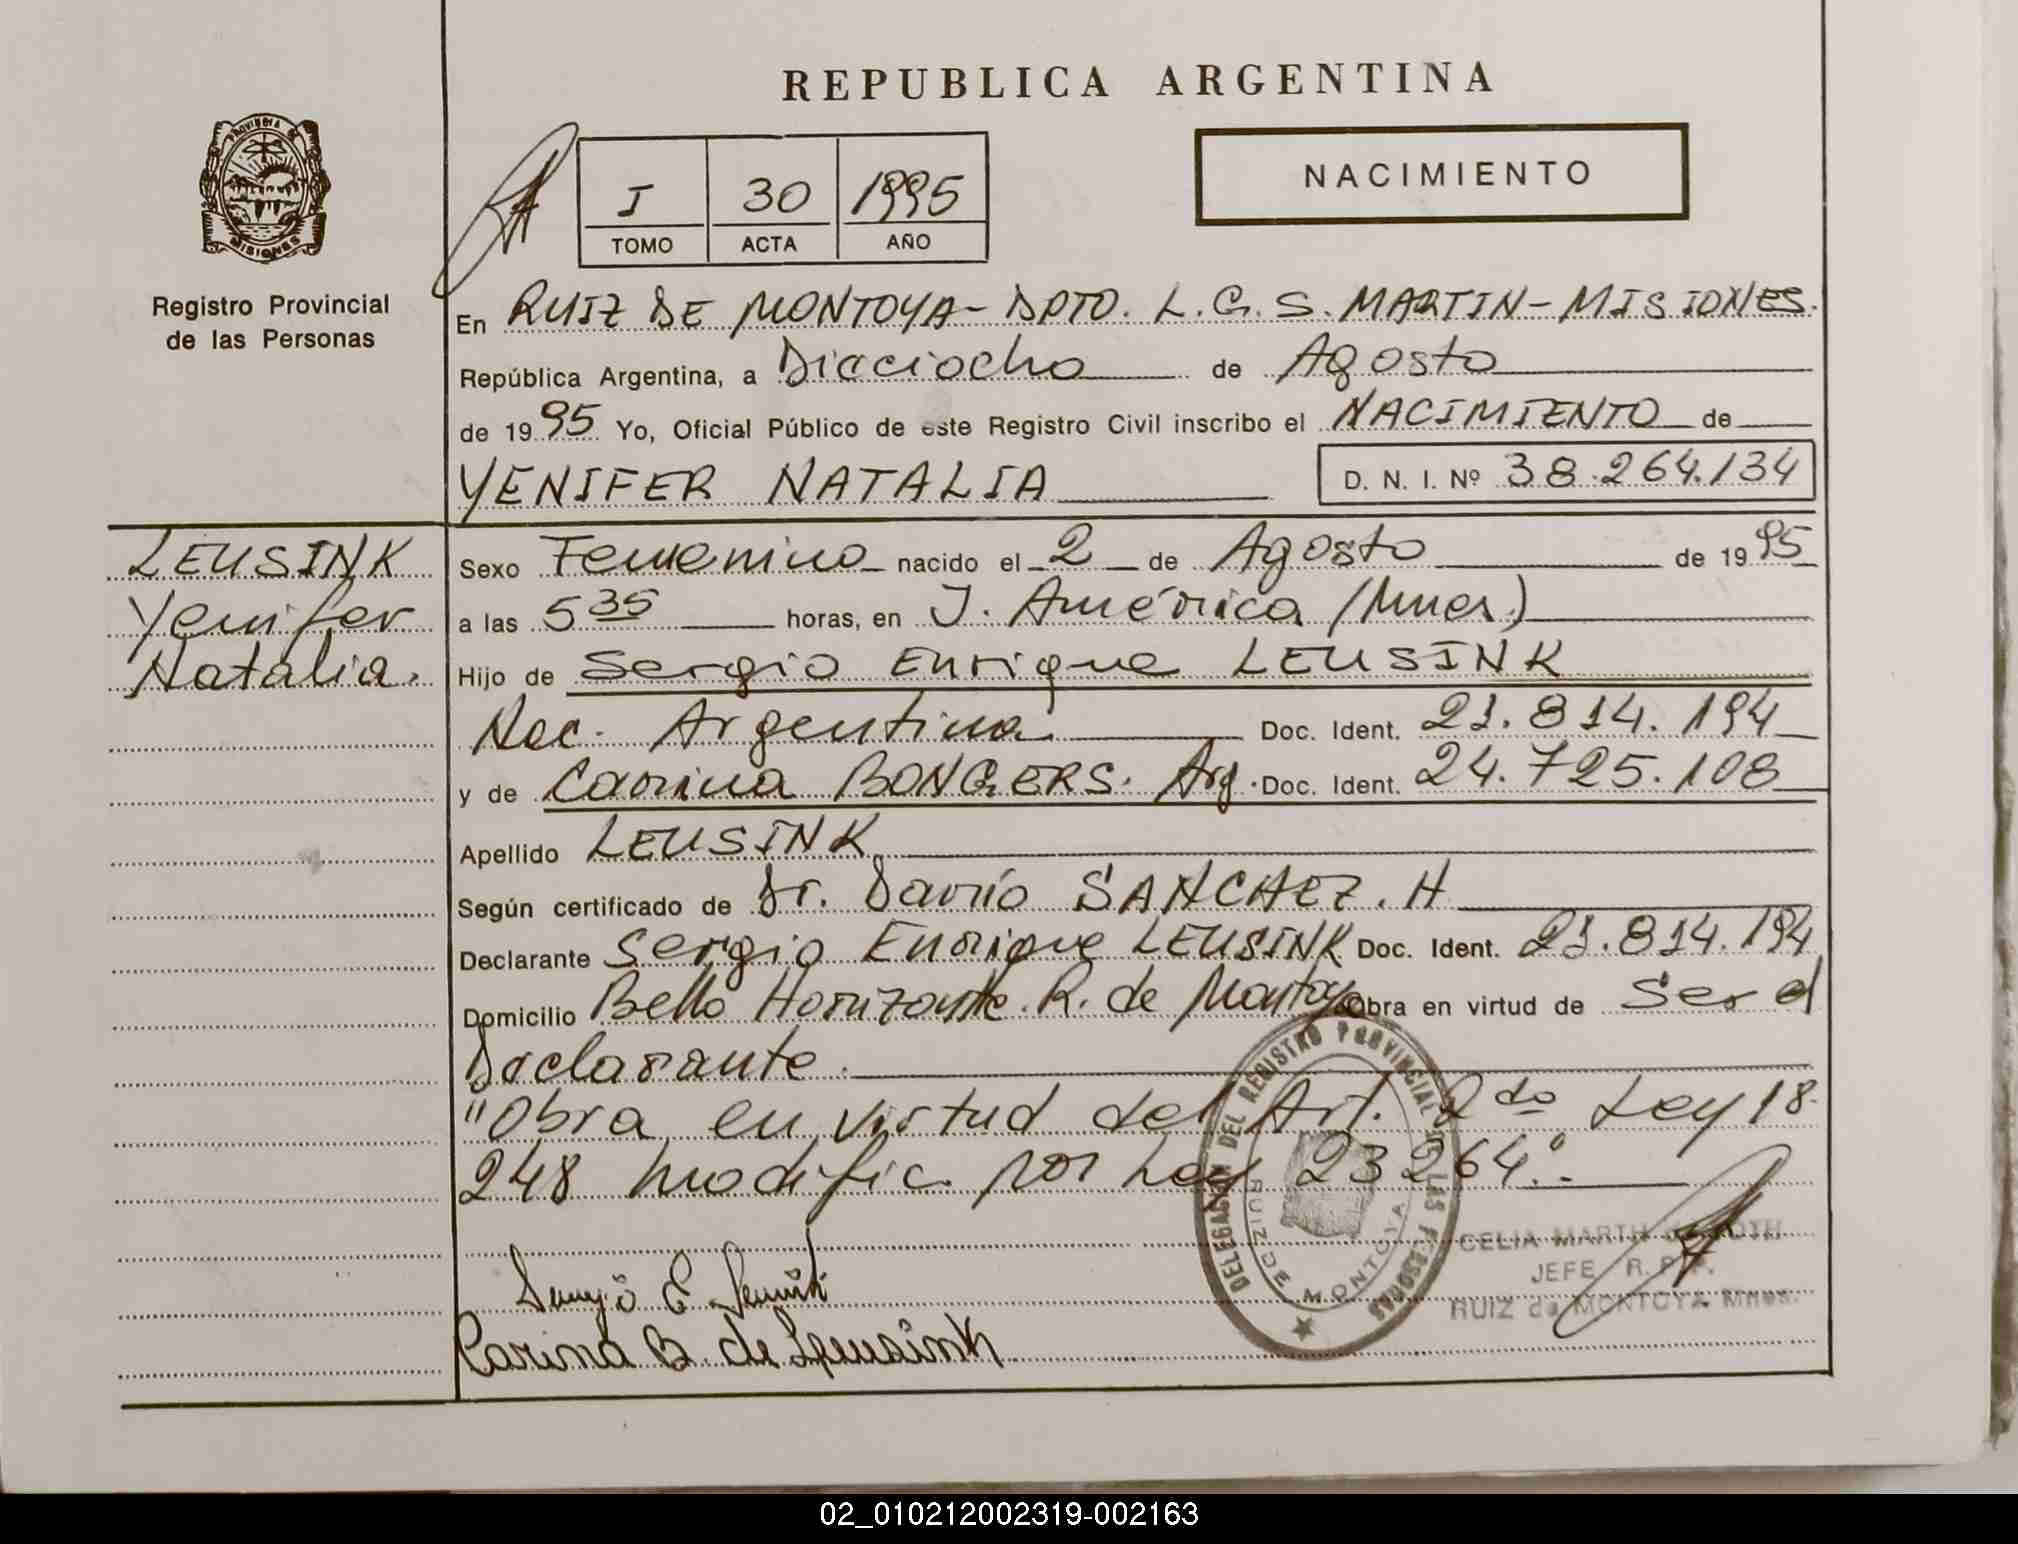 REPUBLICA ARGENTINA
PROVINCIA DE
MISIONES
Registro Provincial
de las Personas
I 30 1995
TOMO ACTA AÑO
NACIMIENTO
En RUIZ DE MONTOYA - DPTO. L. G. S. MARTIN - MISIONES.
República Argentina, a Dieciocho de Agosto
de 1995 Yo, Oficial Público de este Registro Civil inscribo el NACIMIENTO de
YENIFER NATALIA D. N. I. Nº 38.264.134
LEUSINK
Yenifer
Natalia.
Sexo Femenino nacido el 2 de Agosto de 1995
a las 5 35 horas, en J. América (Mnes.)
Hijo de Sergio Enrique LEUSINK
Nac. Argentina Doc. Ident. 21.814.194
y de Carina BONGERS. Arg. Doc. Ident. 24.725.108
Apellido LEUSINK
Según certificado de Dr. Darío SANCHEZ. H
Declarante Sergio Enrique LEUSINK Doc. Ident. 21.814.194
Domicilio Bello Horizonte. R. de Montoya Obra en virtud de Ser el
Declarante.
"Obra en virtud del Art. 2do Ley 18.
248 modific. por Ley 23264".-
DELEGACION DEL REGISTRO PROVINCIAL DE LAS PERSONAS
RUIZ DE MONTOYA
CELIA MARTH de ROTH
JEFE R. P. P.
RUIZ de MONTOYA Mnes.
Sergio E Leusink
Carina B. de Leusink
02_010212002319-002163